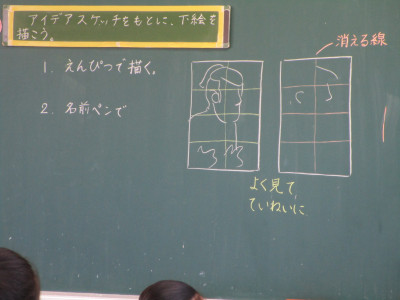 アイデアスケッチをもとに、下絵を
描こう。
消える線
1. えんぴつで描く。
2. 名前ペンで
よく見て、
ていねいに